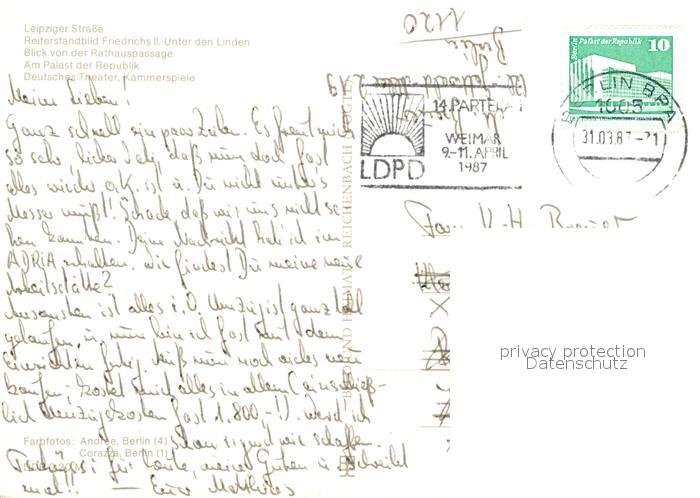 Leipziger Straße
Reiterstandbild Friedrichs II. Unter den Linden
Blick von der Rathauspassage
Am Palast der Republik
Deutsches Theater, Kammerspiele
Meine Lieben!
Ganz schnell ein paar Zeilen. Es freut mich
so sehr, liebe daß nun doch fast
alles wieder o.k. ist u. Du nicht unter's
Messer mußt! Schade, daß wir uns nicht se-
hen konnten. Deine Nachricht hab' ich im
ADRIA erhalten. Wie findest Du meine neue
Arbeitsstätte?
Ansonsten ist alles i.O. Umzug ist ganz toll
gelaufen, u. nun bin ich fast mit dem
Einrichten fertig. Muß nun noch einiges neu
kaufen; kostet mich alles in allem (einschließ-
lich Umzugskosten fast 1.800,-!). Werd' ich
schon irgendwie schaffen.
für heute, meine Guten u. schreibt
mal! — Euer Matthias
Farbfotos: Andree, Berlin (4)
Corazza, Berlin (1)
BILD UND HEIMAT REICHENBACH (VOGTL)
1120
Berlin
14. PARTEITAG
WEIMAR
9.-11. APRIL
1987
LDPD
Berlin Palast der Republik
10
BERLIN BPA
1085
31.03.87-21
Fam. K.-H.
privacy protection
Datenschutz